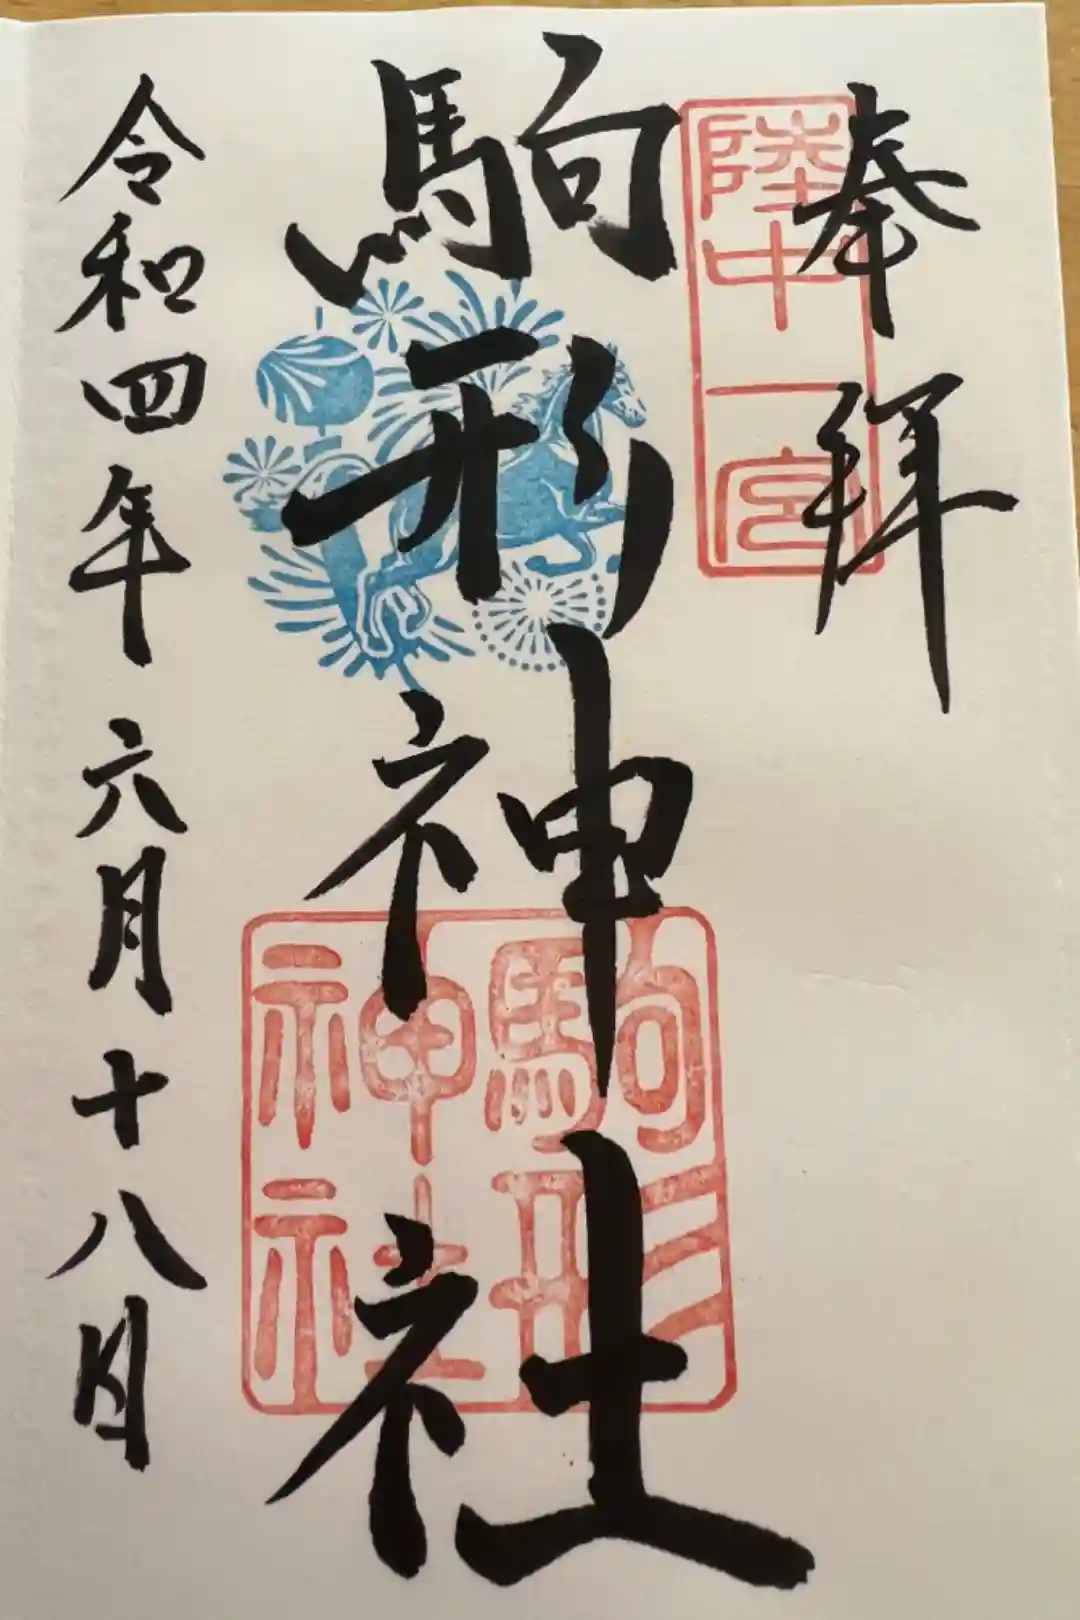 奉拝
陸中一宮
駒形神社
駒形
神社
令和四年六月十八日